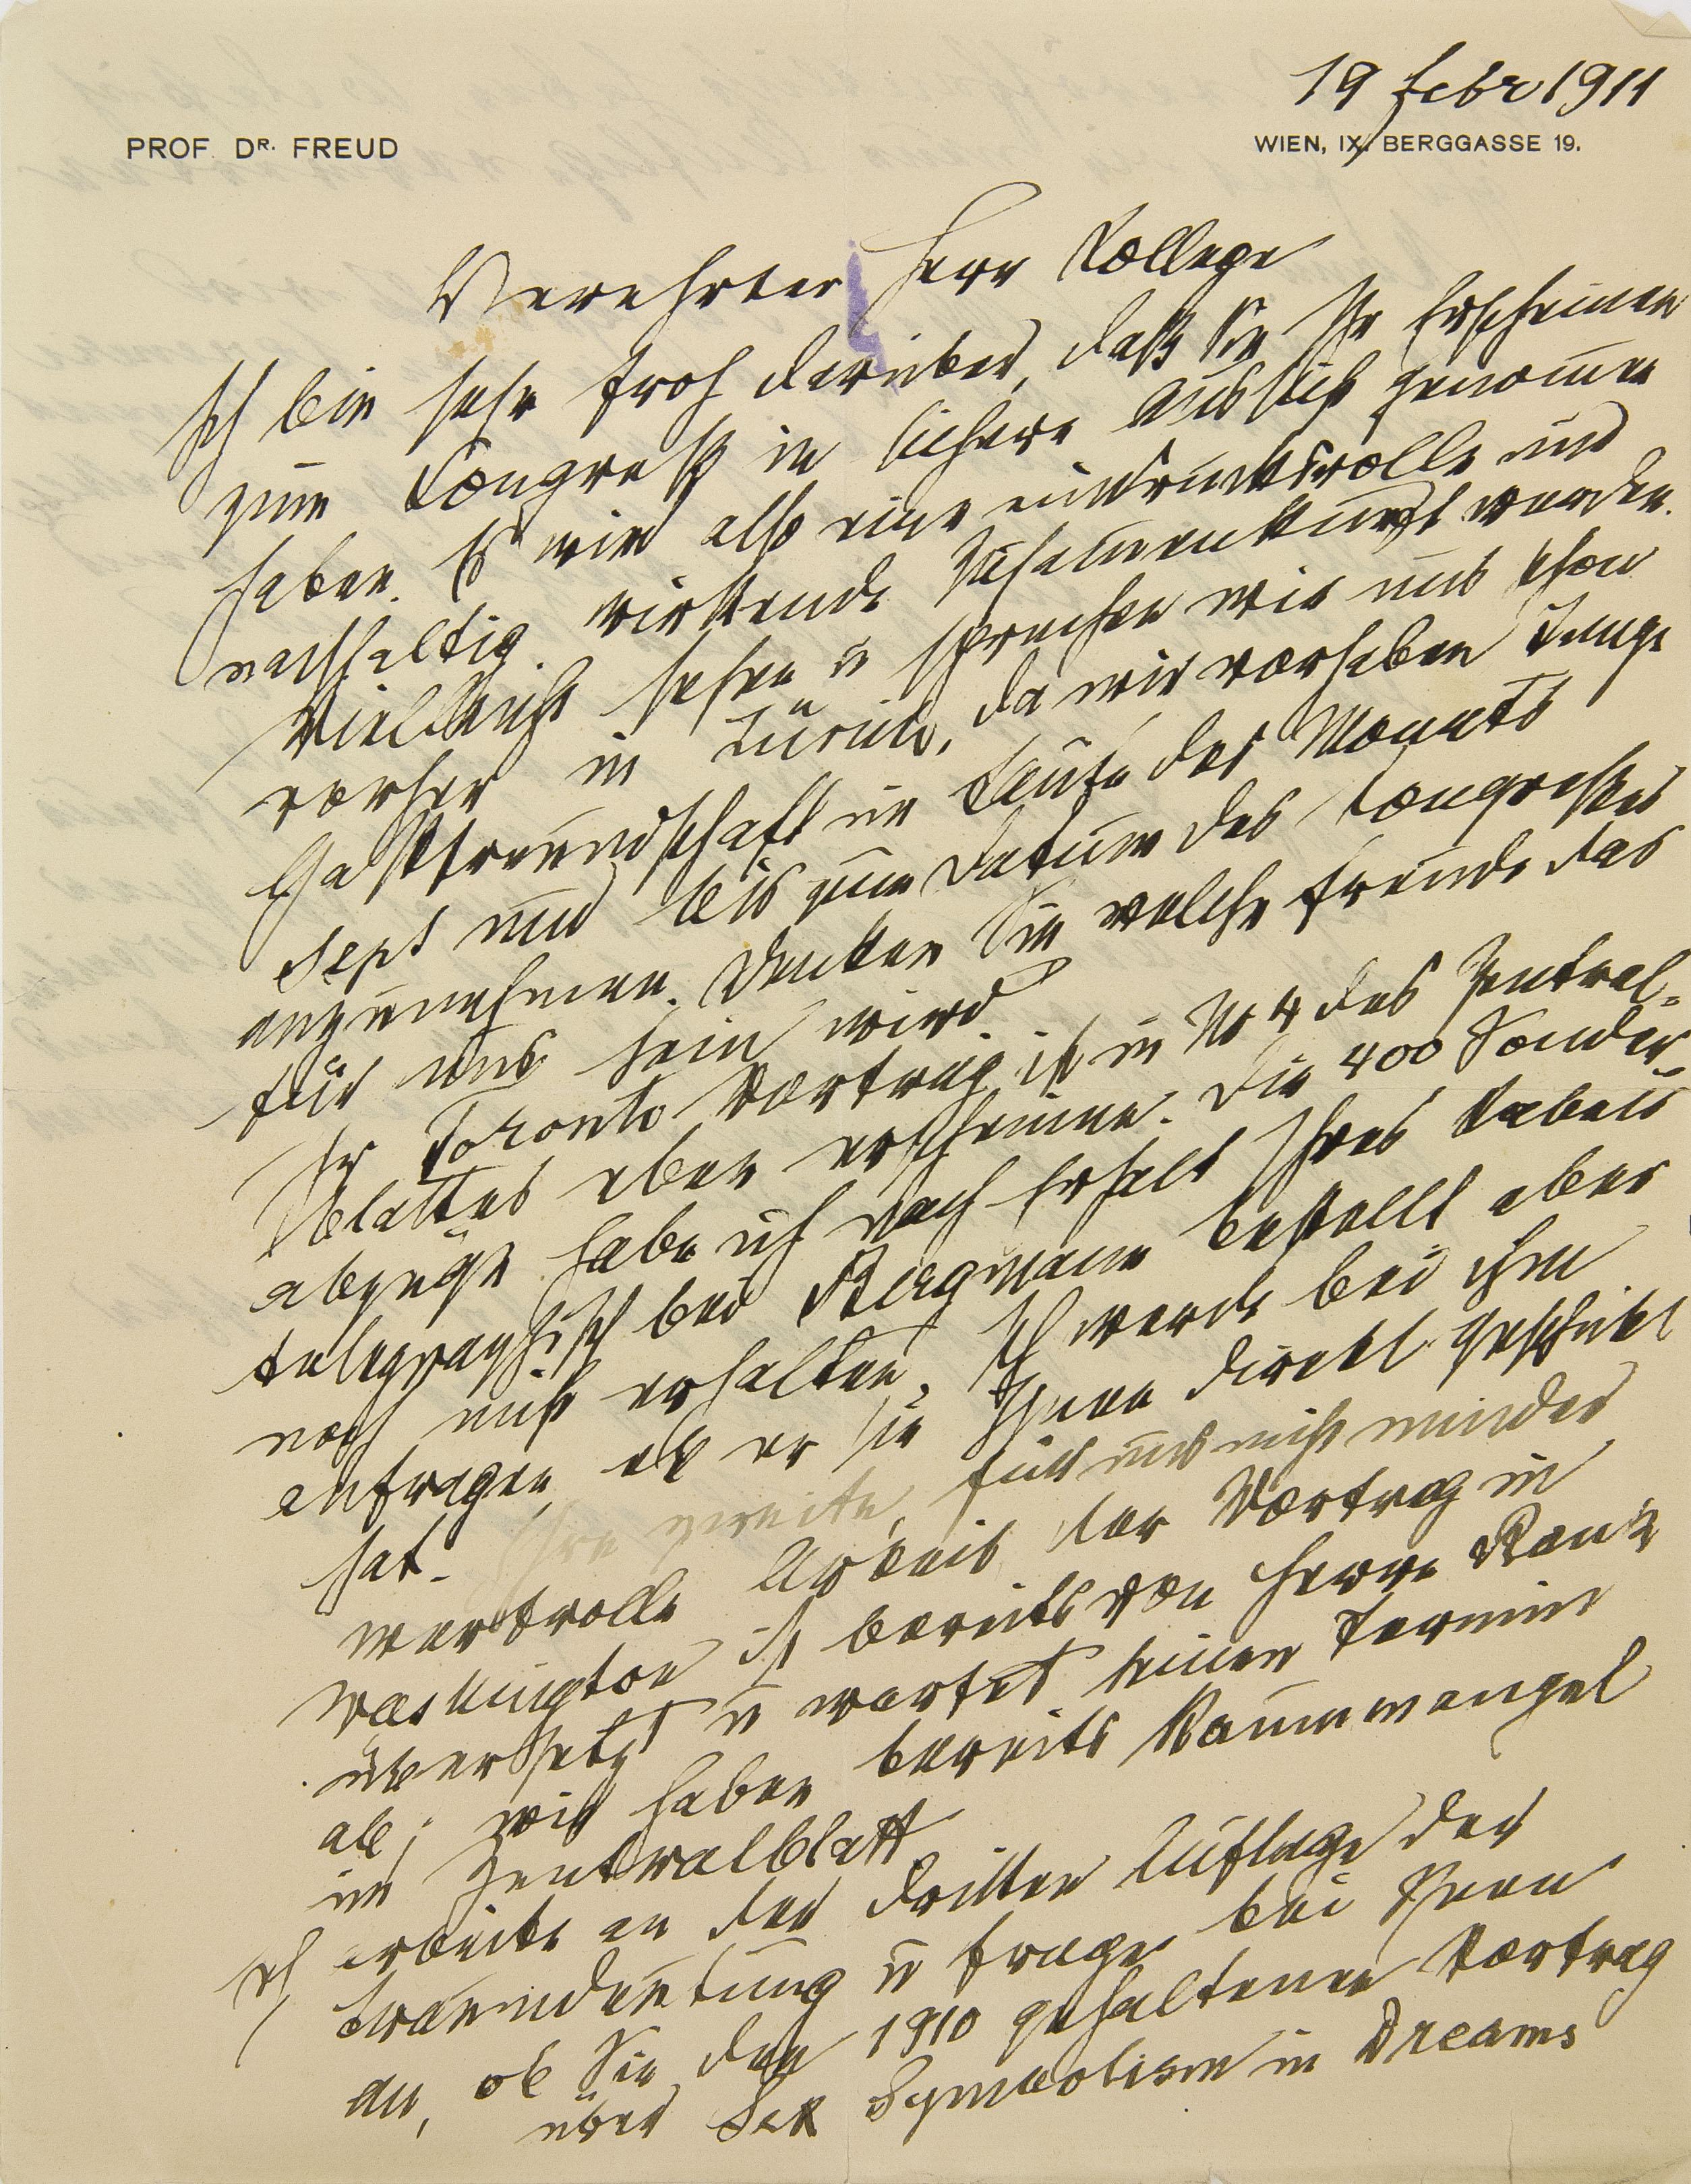 19 Febr 1911
PROF. DR. FREUD
WIEN, IX. BERGGASSE 19.
Verehrter Herr Kollege
Ich bin sehr froh darüber, daß Sie Ihr Erscheinen
zum Congreß in sichere Aussicht genommen
haben. Es wird also eine eindrucksvolle und
nachhaltig wirkende Zusammenkunft werden.
Vielleicht sehen u sprechen wir uns schon
vorher in Zürich, da wir vorhaben Jungs
Gastfreundschaft im Laufe des Monats
Sept und bis zum Datum des Congresses
anzunehmen. Denken Sie welche Freude das
für uns sein wird.
Ihr Toronto Vortrag ist in No 4 des Zentral-
blattes eben erschienen. Die 400 Sonder-
abzüge habe ich nach Erhalt Ihres Kabels
telegraphisch bei Bergmann bestellt aber
noch nicht erhalten. Ich werde bei ihm
anfragen ob er sie Ihnen direkt geschickt
hat. Ihre zweite, für uns nicht minder
wertvolle Arbeit der Vortrag in
Washington ist bereits von Herrn Rank
übersetzt u wartet seinen Termin
ab; wir haben bereits Raummangel
im Zentralblatt
Ich arbeite an der dritten Auflage der
Traumdeutung u frage bei Ihnen
an, ob Sie den 1910 gehaltenen Vortrag
über Sex Symbolism in Dreams